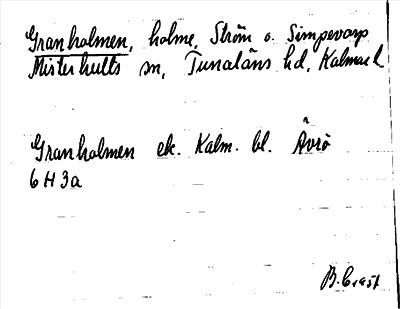 Granholmen, holme, Ström o. Simpevarp
Misterhults sn, Tunaläns hd, Kalmar l
Granholmen ek. Kalm. bl. Ävrö
6 H 3a
B.